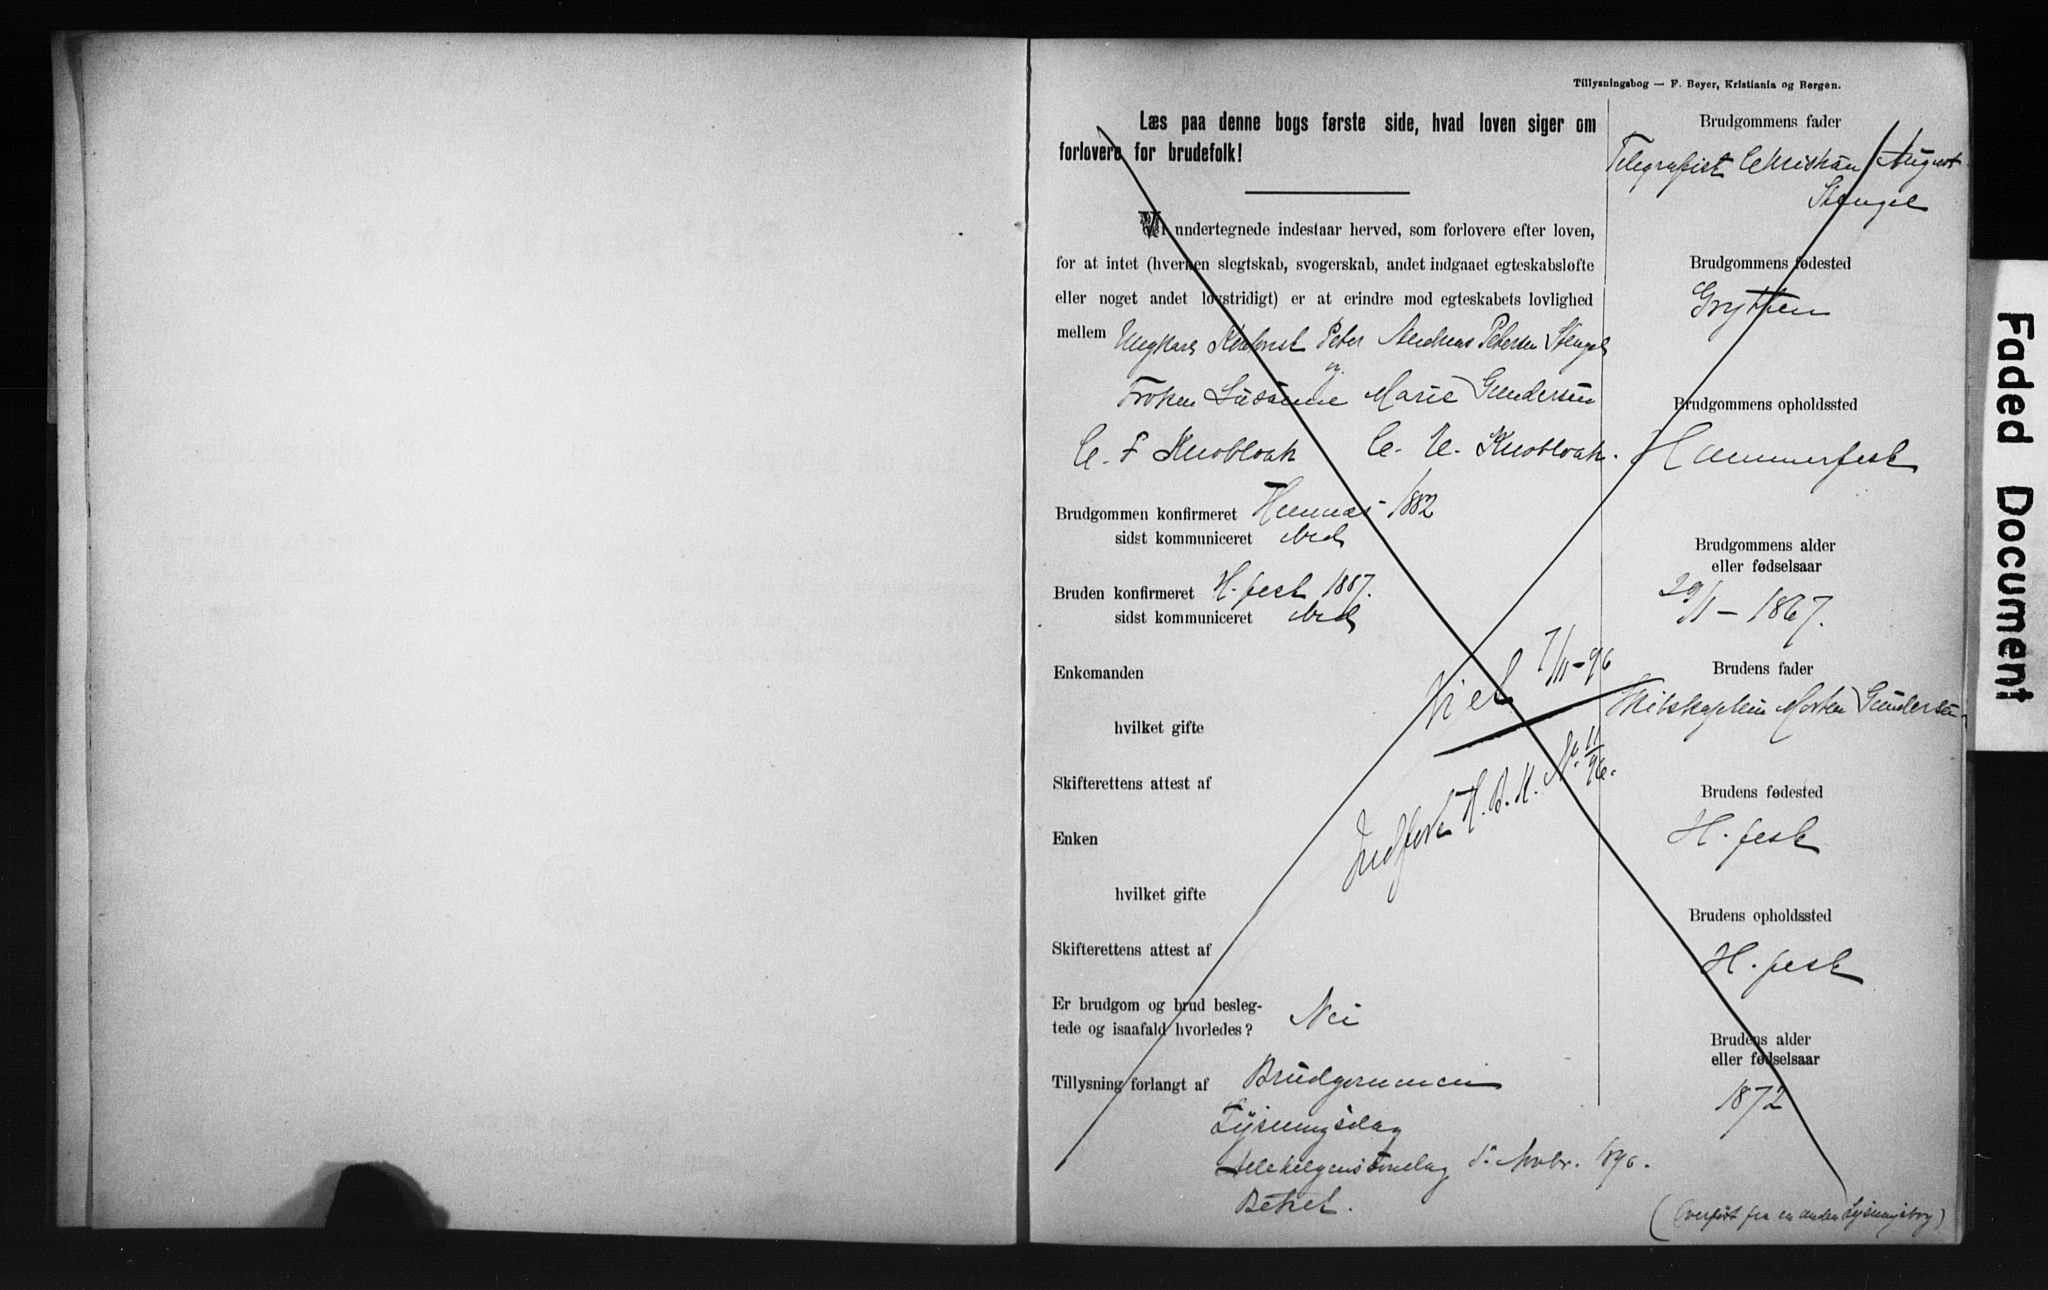 Tillysningsbog — F. Beyer, Kristiania og Bergen.
Læs paa denne bogs første side, hvad loven siger om
forlovere for brudefolk!
Vi undertegnede indestaar herved, som forlovere efter loven,
for at intet (hverken slegtskab, svogerskab, andet indgaaet egteskabsløfte
eller noget andet lovstridigt) er at erindre mod egteskabets lovlighed
mellem Ungkarl Peter Andreas Petersen Stengel
og
Frøken Susanne Marie Gundersen
C. F Knobloch C. U. Knobloch.
Brudgommen konfirmeret Hemnæs - 1882
sidst kommuniceret
Bruden konfirmeret H.fest 1887.
sidst kommuniceret
Enkemanden
hvilket gifte
Skifterettens attest af
Enken
hvilket gifte
Skifterettens attest af
Er brudgom og brud besleg-
tede og isaafald hvorledes? Nei
Tillysning forlangt af Brudgommen
Lysningsdag
Allehelgenssøndag Novbr. 1896.
Betalt.
Viet 7/11-96
Indført H. B. K. No. 11/96.
Brudgommens fader
Telegrafist Christian August
Stengel
Brudgommens fødested
Grytten
Brudgommens opholdssted
Hammerfest
Brudgommens alder
eller fødselsaar
29/11 - 1867.
Brudens fader
Skibskaptein Morten Gundersen
Brudens fødested
H.fest
Brudens opholdssted
H.fest
Brudens alder
eller fødselsaar
1872
(Overført fra en anden Lysningsbog)
Faded Document